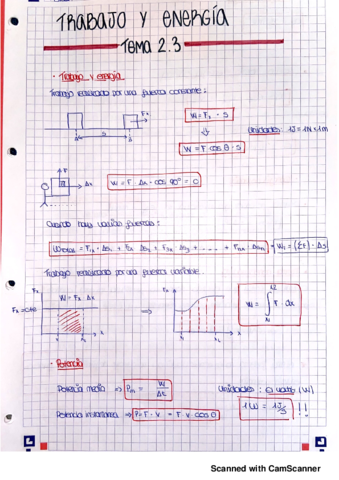 TRABAJO Y ENERGÍA
TEMA 2.3
· Trabajo y energía
Trabajo realizado por una fuerza constante:
Fx
W = Fx · s
s
Unidades: 1J = 1N × 1m
W = F · cos θ · s
F
m
Δx
W = F · Δx · cos 90° = 0
Cuando hay varias fuerzas:
Wtotal = F1x · Δs1 + F2x Δs2 + F3x Δs3 + ..... + Fnx · Δsn = Wt = (ΣF) · Δs
Trabajo realizado por una fuerza variable
Fx
W = Fx Δx
Fx = cte
x
⇒
Fx
x1
x2
x
W = ∫ F dx
x1
x2
· Potencia
Potencia media ⇒ Pm = W / Δt
Unidades: El vatio (W)
1W = 1J/s !!
Potencia instantánea ⇒ P = F · v = F · v · cos θ
Scanned with CamScanner